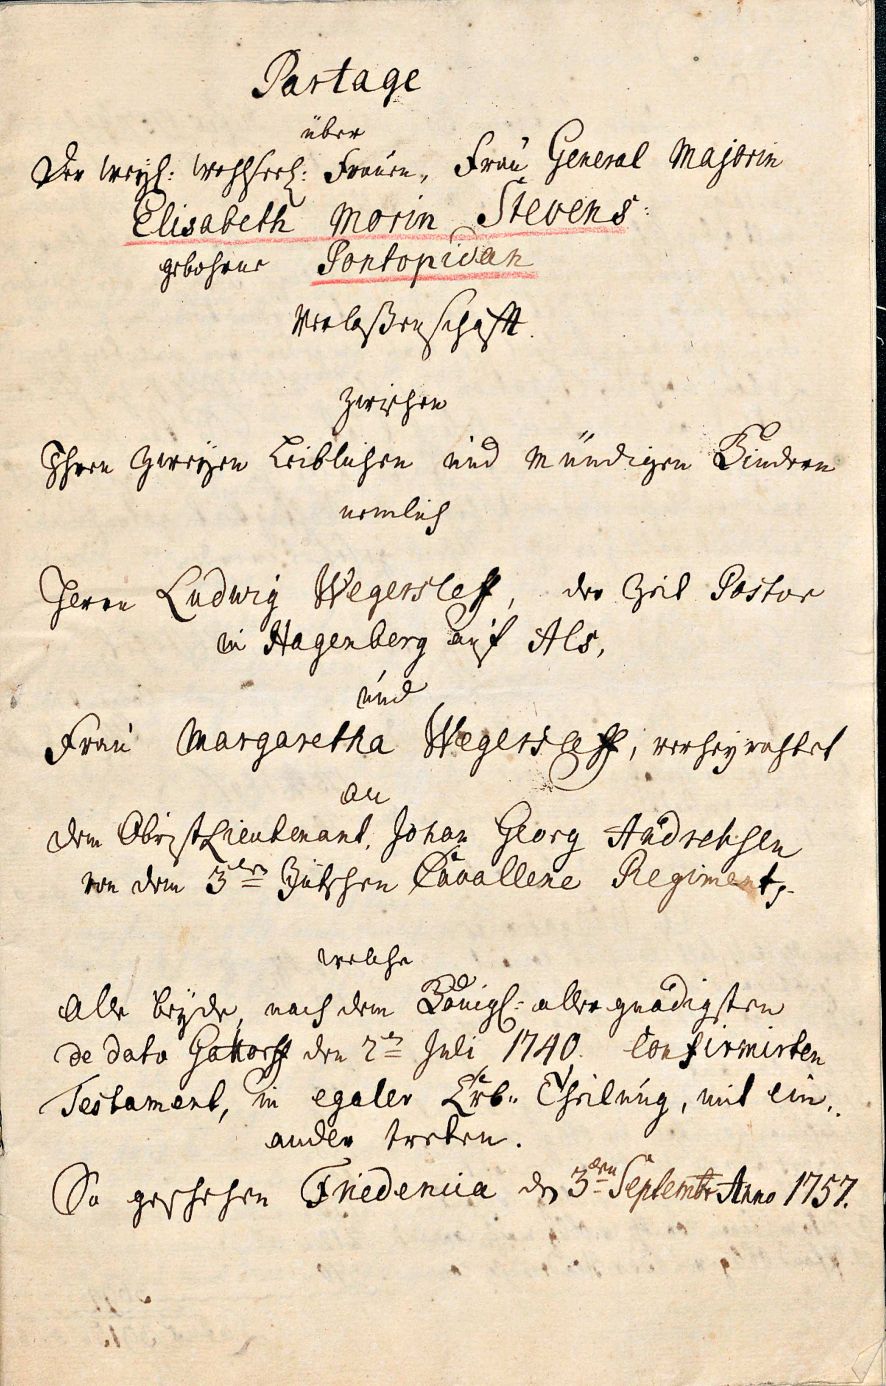 Partage
über
Der weyl: wohlseel: Frauen, Frau General Majorin
Elisabeth Morin Stevens:
gebohrne Pontopidan
Verlaßenschafft.
zwischen
Ihren zweyen Leiblichen und Mündigen Kindern
nemlich
Herrn Ludwig Wegersleff, der Zeit Pastor
in Hagenberg auf Als,
und
Frau Margaretha Wegersleff, verheyrahtet
an
dem ObristLieutenant, Johan Georg
von dem 3ten Jütschen Cavallerie Regiment,
welche
Alle beyde, nach dem Königl: allergnädigsten
de dato Gottorff den 2ten Juli 1740. Confirmirten
Testament, in egaler Erb- Theilung, mit ein,,
ander treten.
So geschehen Friedericia den 3ten Septembr Anno 1757.